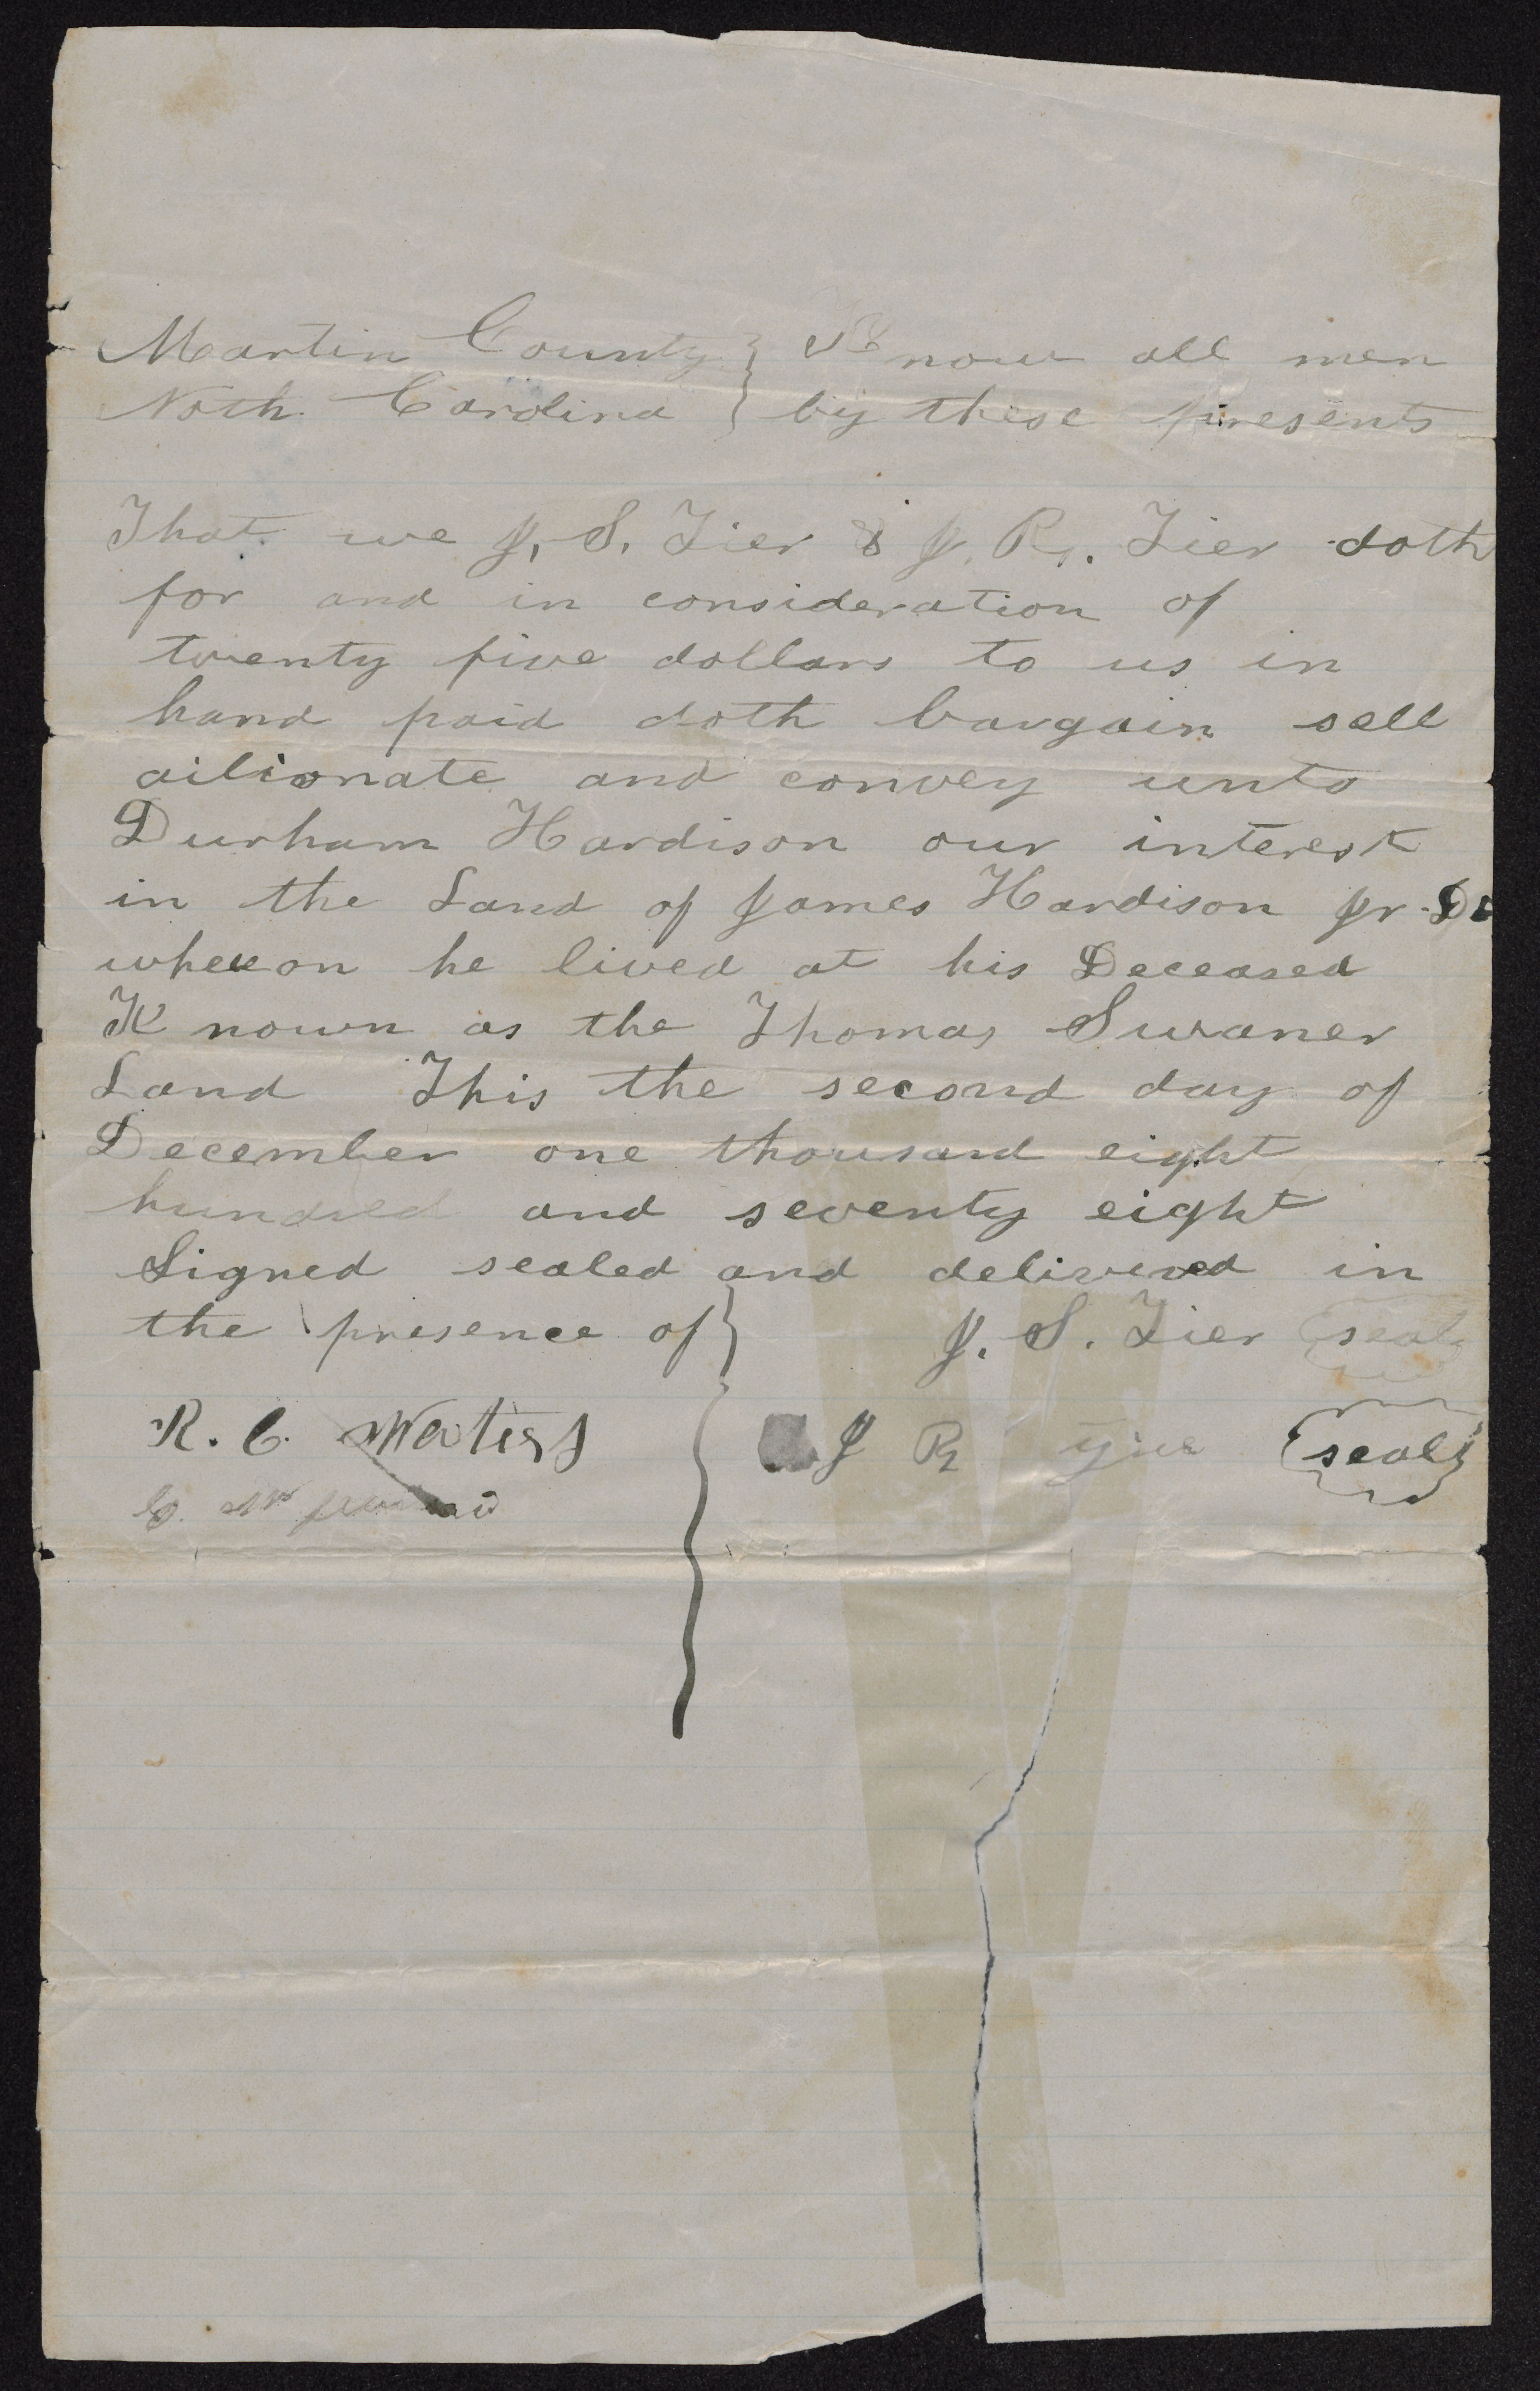 Martin County } Know all men
Noth Carolina } by these presents
That we J. S. Tier & J. R. Tier doth
for and in consideration of
twenty five dollars to us in
hand paid doth bargain sell
ailionate and convey unto
Durham Hardison our interest
in the Land of James Hardison Jr. De
whereon he lived at his Deceased
Known as the Thomas Swaner
Land This the second day of
December one thousand eight
hundred and seventy eight
Signed sealed and delivered in
the presence of } J. S. Tier seal
R. C. Waters J R seal